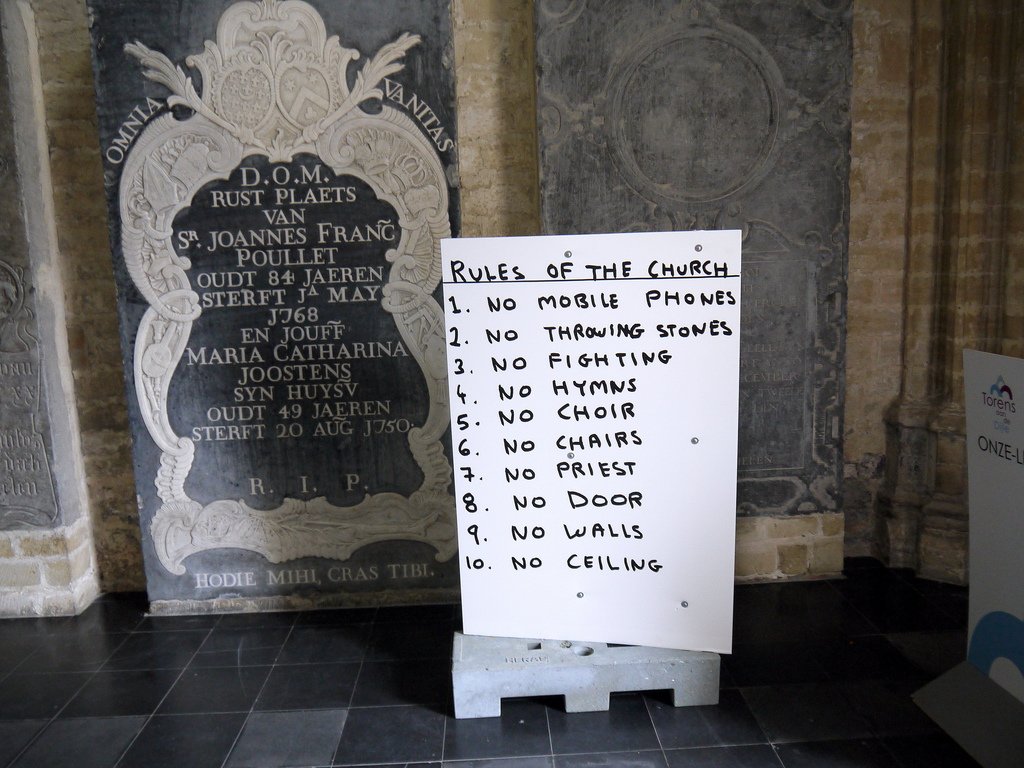 OMNIA VANITAS
D.O.M.
RUST PLAETS
VAN
SR. JOANNES FRANC̃
POULLET
OUDT 84 JAEREN
STERFT JA MAY
J768
EN JOUFF̃
MARIA CATHARINA
JOOSTENS
SYN HUYSṼ
OUDT 49 JAEREN
STERFT 20 AUG̃ J750.
R. I. P.
HODIE MIHI, CRAS TIBI.
RULES OF THE CHURCH
1. NO MOBILE PHONES
2. NO THROWING STONES
3. NO FIGHTING
4. NO HYMNS
5. NO CHOIR
6. NO CHAIRS
7. NO PRIEST
8. NO DOOR
9. NO WALLS
10. NO CEILING
Torens
aan de
Dijle